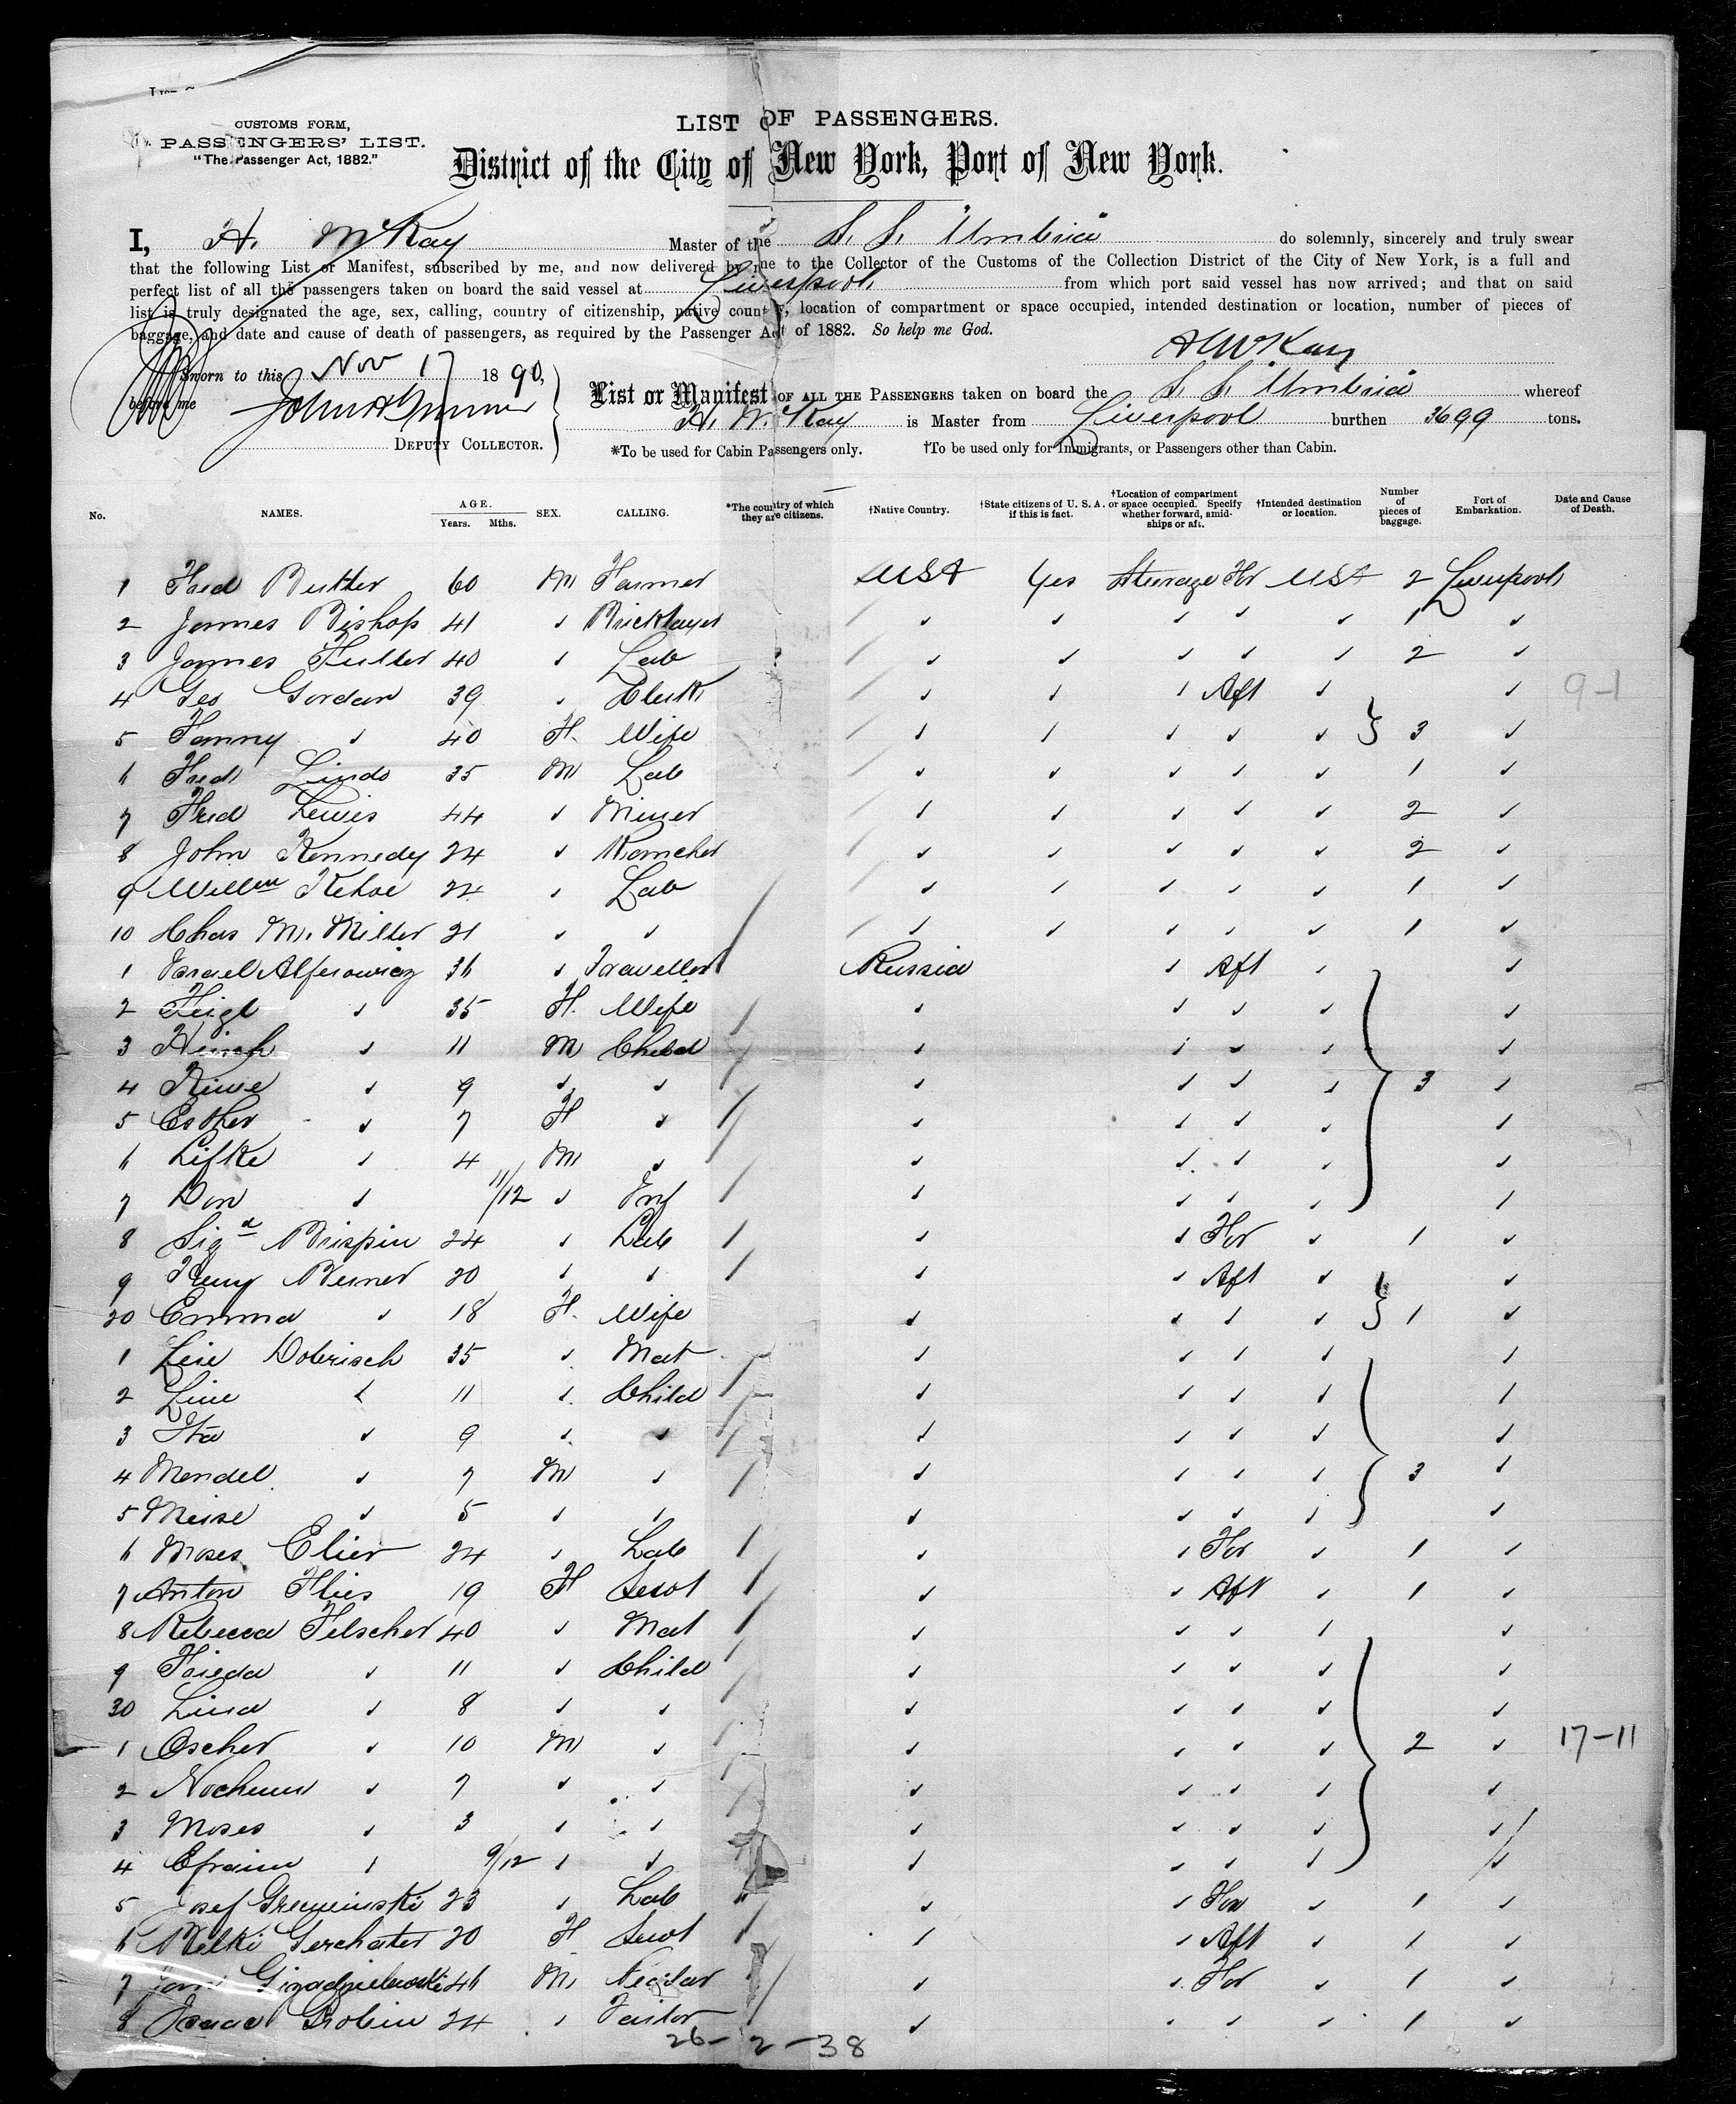 CUSTOMS FORM,
PASSENGERS' LIST.
"The Passenger Act, 1882."
LIST OF PASSENGERS.
District of the City of New York, Port of New York.
I, H. McKay Master of the S. S. "Umbria" do solemnly, sincerely and truly swear
that the following List or Manifest, subscribed by me, and now delivered by me to the Collector of the Customs of the Collection District of the City of New York, is a full and
perfect list of all the passengers taken on board the said vessel at Liverpool from which port said vessel has now arrived; and that on said
list is truly designated the age, sex, calling, country of citizenship, native country, location of compartment or space occupied, intended destination or location, number of pieces of
baggage, and date and cause of death of passengers, as required by the Passenger Act of 1882. So help me God.
H McKay
Sworn to this Nov 17 1890,
before me
DEPUTY COLLECTOR.
List or Manifest OF ALL THE PASSENGERS taken on board the S. S. Umbria whereof
H. McKay is Master from Liverpool burthen 3699 tons.
*To be used for Cabin Passengers only. †To be used only for Immigrants, or Passengers other than Cabin.
No. NAMES. AGE. Years. Mths. SEX. CALLING. *The country of which they are citizens. †Native Country. †State citizens of U. S. A. if this is fact. †Location of compartment or space occupied. Specify whether forward, amidships or aft. †Intended destination or location. Number of pieces of baggage. Port of Embarkation. Date and Cause of Death.
1 Fred Butler 60 M Farmer USA Yes Steerage For USA 2 Liverpool
2 James Bishop 41 ✓ Bricklayer ✓ ✓ ✓ ✓ ✓ 1 ✓
3 James Fuller 40 ✓ Lab ✓ ✓ ✓ ✓ ✓ 2 ✓
4 Geo Gordon 39 ✓ Clerk ✓ ✓ ✓ Aft ✓ ✓ 9-1
5 Fanny ✓ 40 F. Wife ✓ ✓ ✓ ✓ ✓ 3 ✓
6 Fred Lindo 35 M Lab ✓ ✓ ✓ ✓ ✓ 1 ✓
7 Fred Lewis 44 ✓ Miner ✓ ✓ ✓ ✓ ✓ 2 ✓
8 John Kennedy 24 ✓ Rancher ✓ ✓ ✓ ✓ ✓ 2 ✓
9 Willm Kehoe 24 ✓ Lab ✓ ✓ ✓ ✓ ✓ 1 ✓
10 Chas M. Miller 21 ✓ ✓ ✓ ✓ ✓ ✓ ✓ 1 ✓
1 Israel Alferowicz 36 ✓ Traveller Russia ✓ Aft ✓ ✓
2 Feigl ✓ 35 F. Wife ✓ ✓ ✓ ✓ ✓
3 Hirsch ✓ 11 M Child ✓ ✓ ✓ ✓ ✓
4 Riwe ✓ 9 ✓ ✓ ✓ ✓ ✓ ✓ 3 ✓
5 Esther ✓ 7 F ✓ ✓ ✓ ✓ ✓ ✓
6 Lifke ✓ 4 M ✓ ✓ ✓ ✓ ✓ ✓
7 Don ✓ 11/12 ✓ Inf ✓ ✓ ✓ ✓ ✓
8 Sigd Brispin 24 ✓ Lab ✓ ✓ For ✓ 1 ✓
9 Berner 20 ✓ ✓ ✓ ✓ Aft ✓ ✓
20 Emma ✓ 18 F. Wife ✓ ✓ ✓ ✓ 1 ✓
1 Leie Dobrisch 35 ✓ Mat ✓ ✓ ✓ ✓ ✓
2 Line ✓ 11 ✓ Child ✓ ✓ ✓ ✓ ✓
3 Ita ✓ 9 ✓ ✓ ✓ ✓ ✓ ✓ ✓
4 Mendel ✓ 7 M ✓ ✓ ✓ ✓ ✓ 3 ✓
5 Meise ✓ 5 ✓ ✓ ✓ ✓ ✓ ✓ ✓
6 Moses Elier 24 ✓ Lab ✓ ✓ For ✓ 1 ✓
7 Anton Flies 19 F Servt ✓ ✓ Aft ✓ 1 ✓
8 Rebecca Filscher 40 ✓ Mat ✓ ✓ ✓ ✓ ✓
9 Frieda ✓ 11 ✓ Child ✓ ✓ ✓ ✓ ✓
30 Lina ✓ 8 ✓ ✓ ✓ ✓ ✓ ✓ ✓
1 Oscher ✓ 10 M ✓ ✓ ✓ ✓ ✓ 2 ✓ 17-11
2 Nochum ✓ 7 ✓ ✓ ✓ ✓ ✓ ✓ ✓
3 Moses ✓ 3 ✓ ✓ ✓ ✓ ✓ ✓ ✓
4 Efraim ✓ 9/12 ✓ ✓ ✓ ✓ ✓ ✓ ✓
5 Josef 23 ✓ Lab ✓ ✓ For ✓ 1 ✓
6 Belki Gerchater 20 F Servt ✓ ✓ Aft ✓ 1 ✓
7 46 M ✓ ✓ For ✓ 1 ✓
8 Isaac Grobin 24 ✓ Tailor ✓ ✓ ✓ ✓ 1 ✓
26-2-38